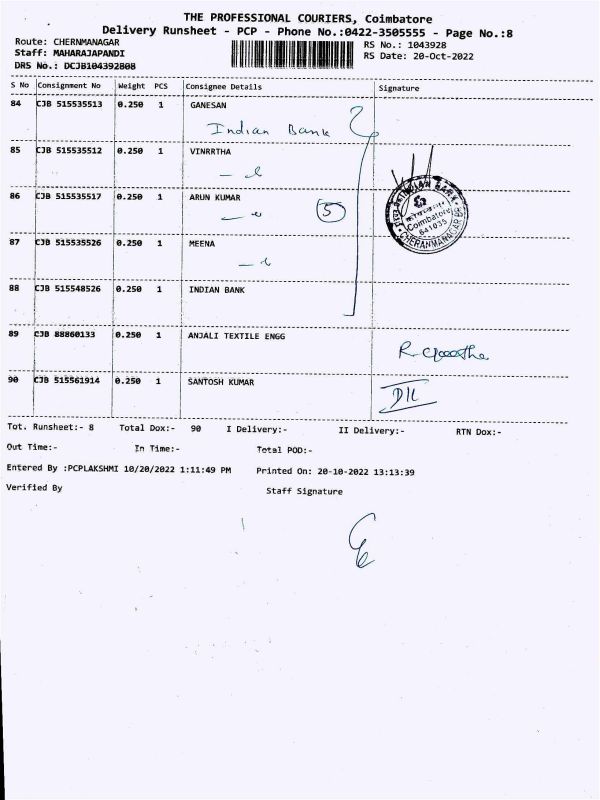 THE PROFESSIONAL COURIERS, Coimbatore
Delivery Runsheet - PCP - Phone No.:0422-3505555 - Page No.:8
Route: CHERNMANAGAR RS No.: 1043928
Staff: MAHARAJAPANDI RS Date: 20-Oct-2022
DRS No.: DCJB104392808
S No Consignment No Weight PCS Consignee Details Signature
84 CJB 515535513 0.250 1 GANESAN
Indian Bank
85 CJB 515535512 0.250 1 VINRRTHA
86 CJB 515535517 0.250 1 ARUN KUMAR
5
INDIAN BANK
Coimbatore
641035
CHERANMANAGAR BR
87 CJB 515535526 0.250 1 MEENA
88 CJB 515548526 0.250 1 INDIAN BANK
89 CJB 88860133 0.250 1 ANJALI TEXTILE ENGG
90 CJB 515561914 0.250 1 SANTOSH KUMAR
Tot. Runsheet:- 8 Total Dox:- 90 I Delivery:- II Delivery:- RTN Dox:-
Out Time:- In Time:- Total POD:-
Entered By :PCPLAKSHMI 10/20/2022 1:11:49 PM Printed On: 20-10-2022 13:13:39
Verified By Staff Signature